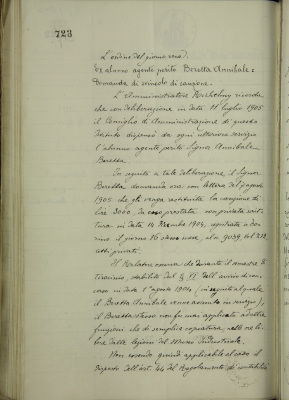 723
L'ordine del giorno reca:
Ex alunno agente perito Beretta Annibale:
Domanda di svincolo di cauzione.
L'Amministratore ricorda
che con deliberazione in data 11 luglio 1905
il Consiglio di Amministrazione di questo
Istituto dispensò da ogni ulteriore servizio
l'alunno agente perito Signor Annibale
Beretta.
In seguito a tale deliberazione il Signor
Beretta domanda ora con lettera del agosto
1905 che gli venga restituita la cauzione di
lire 3000, da esso prestata con privata scrit-
tura in data 14 Novembre 1904, registrata a To-
rino il giorno 16 stesso mese, al n. 9039 vol. 222
atti privati.
Il Relatore osserva che durante il mese di
tirocinio, stabilito dal § VI dell'avviso di con-
corso in data 1° agosto 1904 (in seguito al quale
il Beretta Annibale venne assunto in servizio),
il Beretta stesso non fu mai applicato ad altre
funzioni che di semplice copiatura, nelle ore li-
bere dalle lezioni del Museo Industriale.
Non essendo quindi applicabile al caso il
disposto dell'art. 44 del Regolamento di contabilità